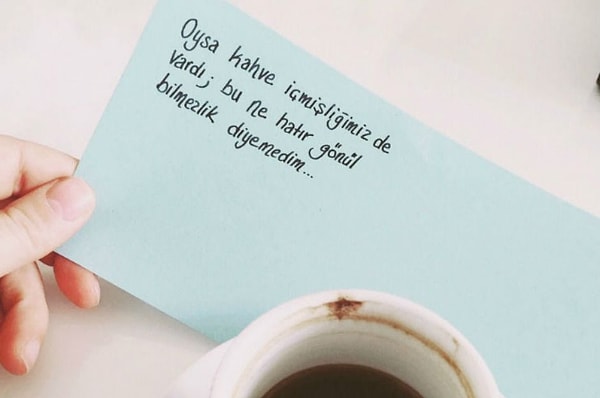 Oysa kahve içmişliğimiz de
vardı; bu ne hatır gönül
bilmezlik diyemedim...